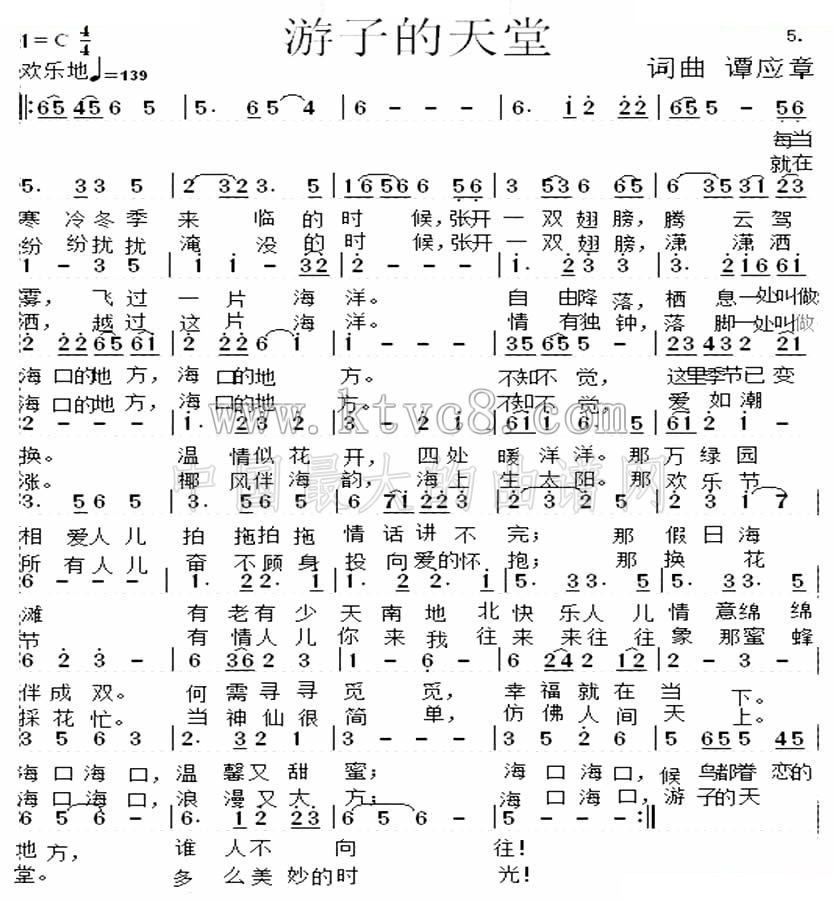 游子的天堂
1=C 4/4
5.
欢乐地♩=139
词曲 谭应章
‖:65 45 6 5 | 5. 6 5 4 | 6 - - - | 6. 1 2 22 | 65 5 - 56
每当
就在
5. 3 3 5 | 2 3 23. 5 | 16 56 6 56 | 3 536 65 | 6 3531 23
寒冷冬季 来 临的时 候,张开一双翅膀,腾 云驾
纷纷扰扰 淹 没的时 候,张开一双翅膀,潇 潇洒
1 - 3 5 | 1 1 - 32 | 2 - - - | 1. 2 3 3 | 3. 216 61
雾, 飞过 一片 海 洋。 自由降落,栖 息一处叫做
洒, 越过 这片 海 洋。 情有独钟,落 脚一处叫做
2 22 65 61 | 2. 22 6 1 | 1 - - - | 35 65 5 - | 23 432 2 21
海口的地方,海 口的地 方。 不知不 觉, 这里季节已变
海口的地方,海 口的地 方。 不知不 觉, 爱 如潮
www.ktvc8.com
2 - - - | 1. 23 2 2 | 3 - 2 1 | 61 1 6. 5 | 61 2 1 -
换。 温 情似花 开, 四处 暖 洋洋。那 万绿园
涨。 椰 风伴海 韵, 海上 生 太阳。那 欢乐节
中国最大的曲谱网
3. 5 6 5 | 3. 5 6 5 | 6 71 22 3 | 5. 5 5 5 | 2 3 1 7
相 爱人儿 拍 拖拍拖 情话讲不 完; 那 假日海
所 有人儿 奋 不顾身 投向爱的怀 抱; 那 换 花
6 - - - | 1. 22. 1 | 1. 2 2. 1 | 5. 33. 5 | 5. 33. 5
滩 有 老有 少 天 南地 北 快 乐人 儿 情 意绵 绵
节 有 情人 儿 你 来我 往 来 来往 往 象 那蜜 蜂
6 2 3 - | 6 36 2 2 | 1 - 6 - | 6 242 12 | 2 - 3 -
伴成双。 何 需寻寻 觅 觅, 幸 福就在 当 下。
採花忙。 当 神仙很 简 单, 仿 佛人间 天 上。
3 5 6 3 | 2. 3 2 1 | 3 - - - | 3 5 2 6 | 5 65 5 45
海口海口,温 馨又甜 蜜; 海口海口,候 鸟都眷 恋的
海口海口,浪 漫又大 方; 海口海口,游 子的天
6 5 6 - | 6. 12 23 | 6 5 6 - | 5 - - - :‖
地方, 谁 人不 向 往!
堂。 多 么美 妙的时 光!